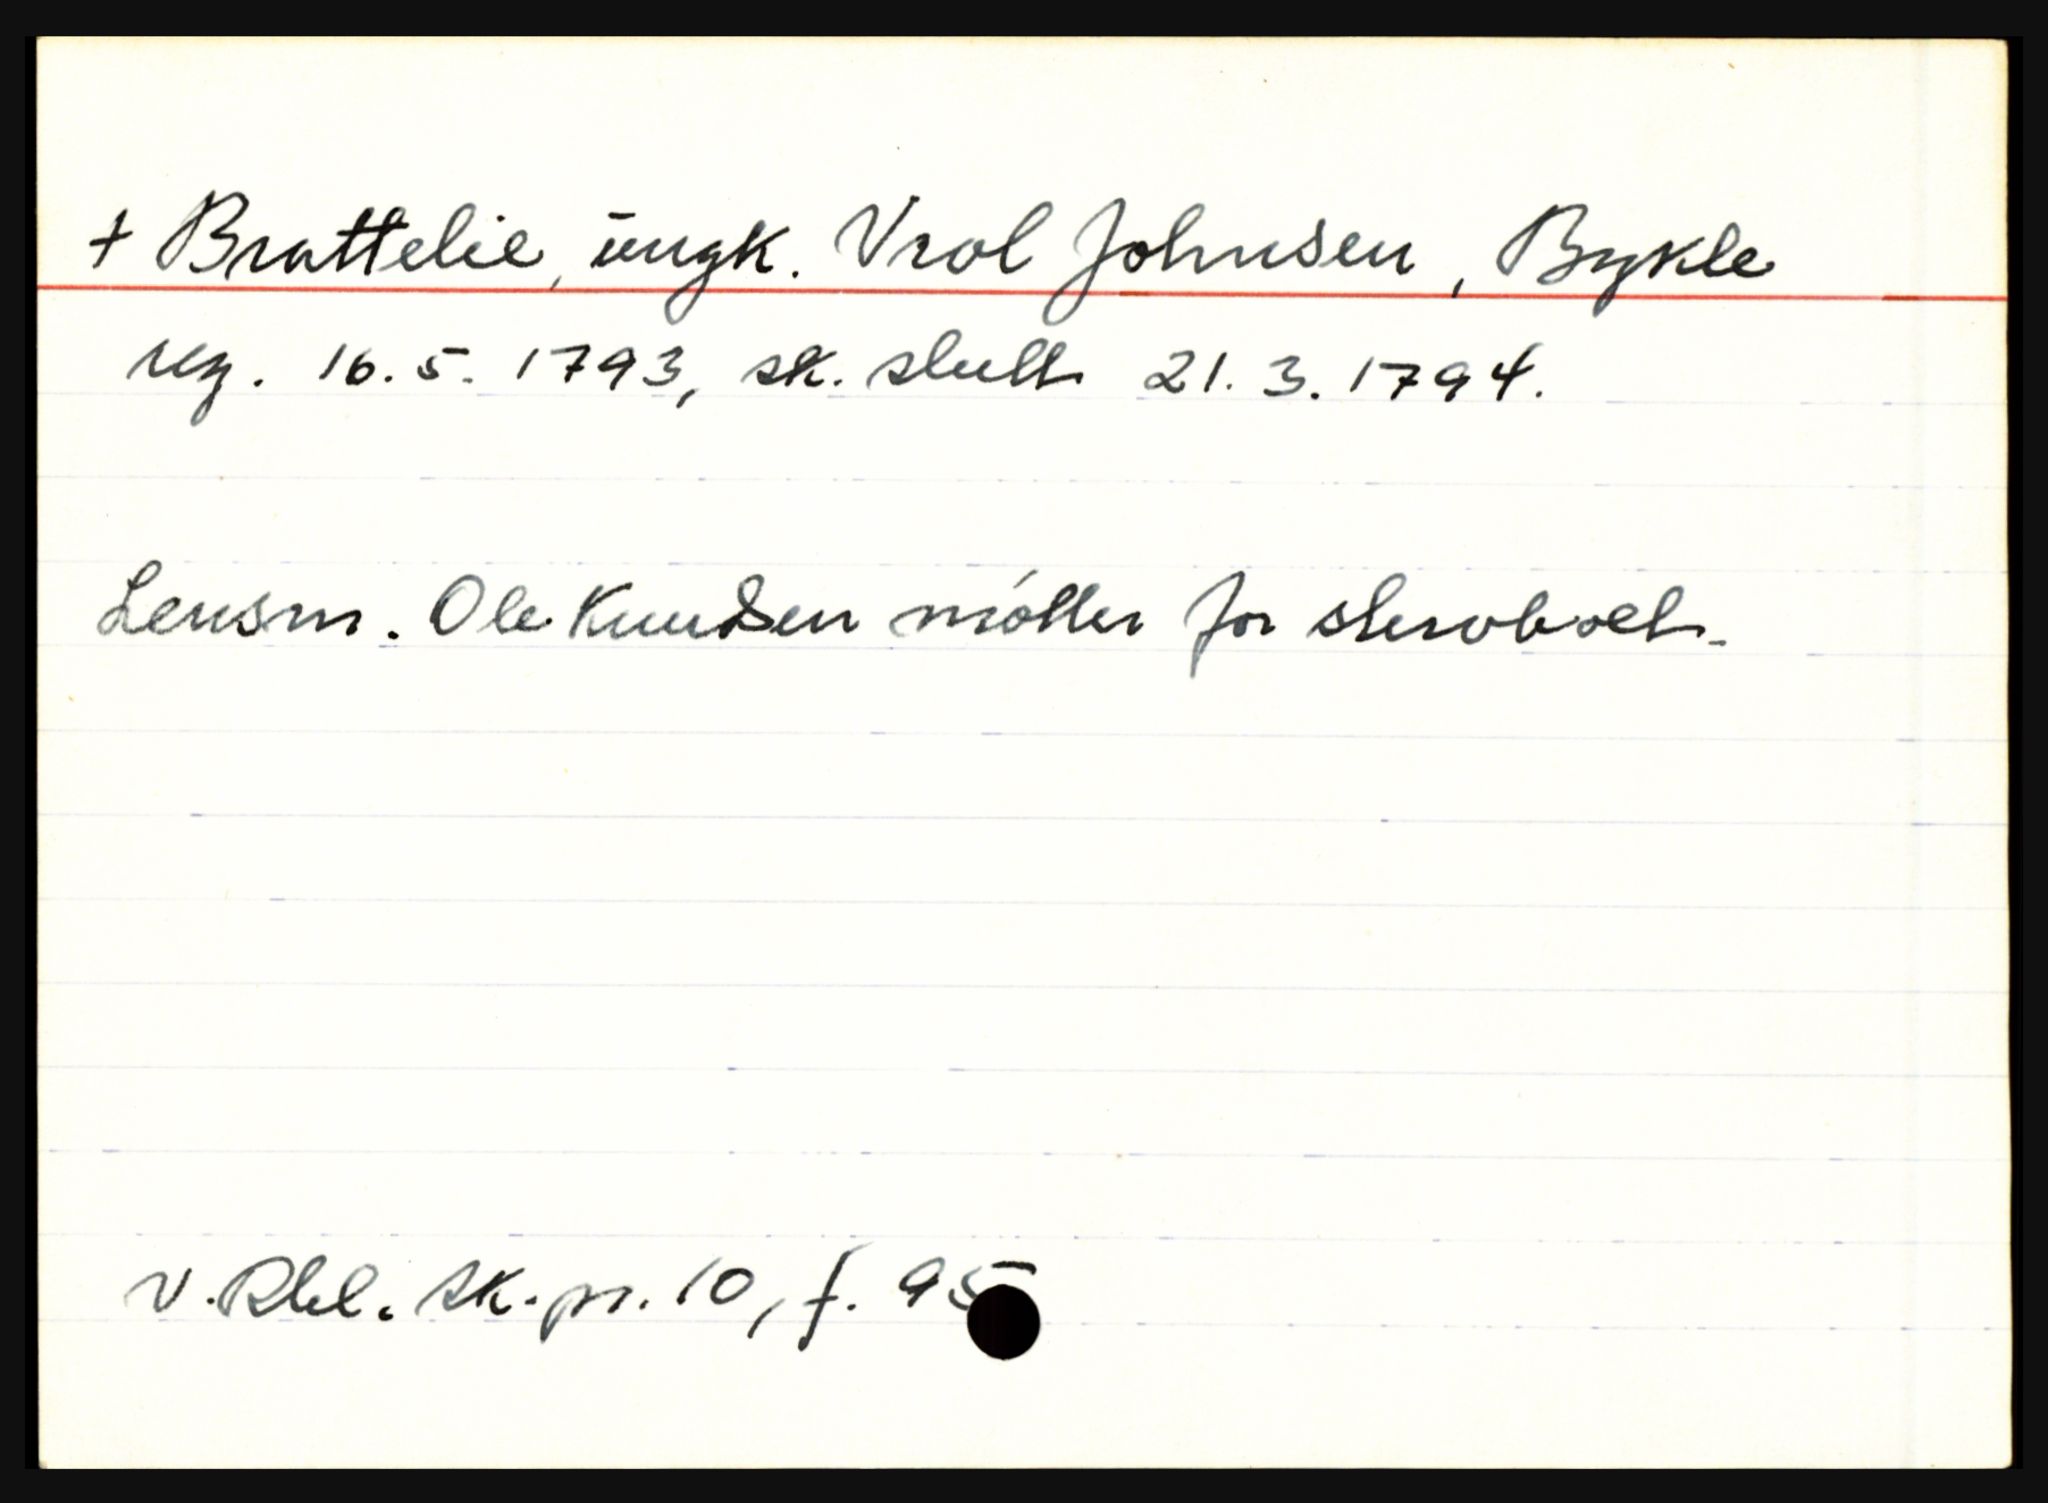 + Brattelie, ungk. Vrol Johnsen, Bykle
reg. 16.5.1793, sk. slutt 21.3.1794.
Lensm. Ole Knudsen møtter for stervboet.
v. Rbl. sk.pr. 10, f. 95